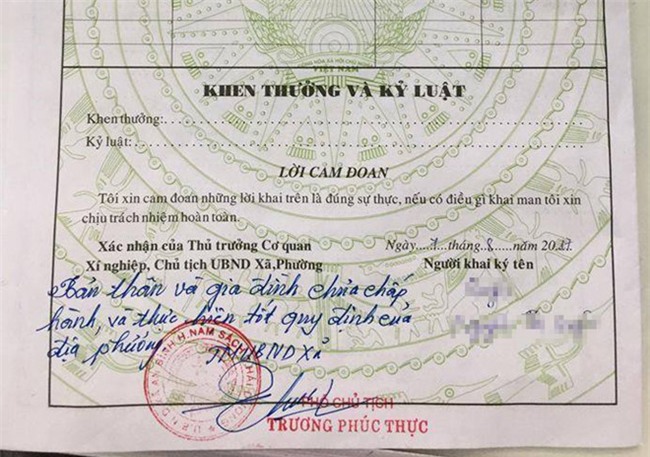 VIỆT NAM
KHEN THƯỞNG VÀ KỶ LUẬT
Khen thưởng:
Kỷ luật:
LỜI CAM ĐOAN
Tôi xin cam đoan những lời khai trên là đúng sự thực, nếu có điều gì khai man tôi xin
chịu trách nhiệm hoàn toàn.
Xác nhận của Thủ trưởng Cơ quan
Xí nghiệp, Chủ tịch UBND Xã,Phường
Ngày 7 tháng 8 năm 2017
Người khai ký tên
Bản thân và gia đình chưa chấp
hành và thực hiện tốt quy định của
địa phương
TM UBND Xã
AN BÌNH H. NAM SÁCH
PHÓ CHỦ TỊCH
TRƯƠNG PHÚC THỰC